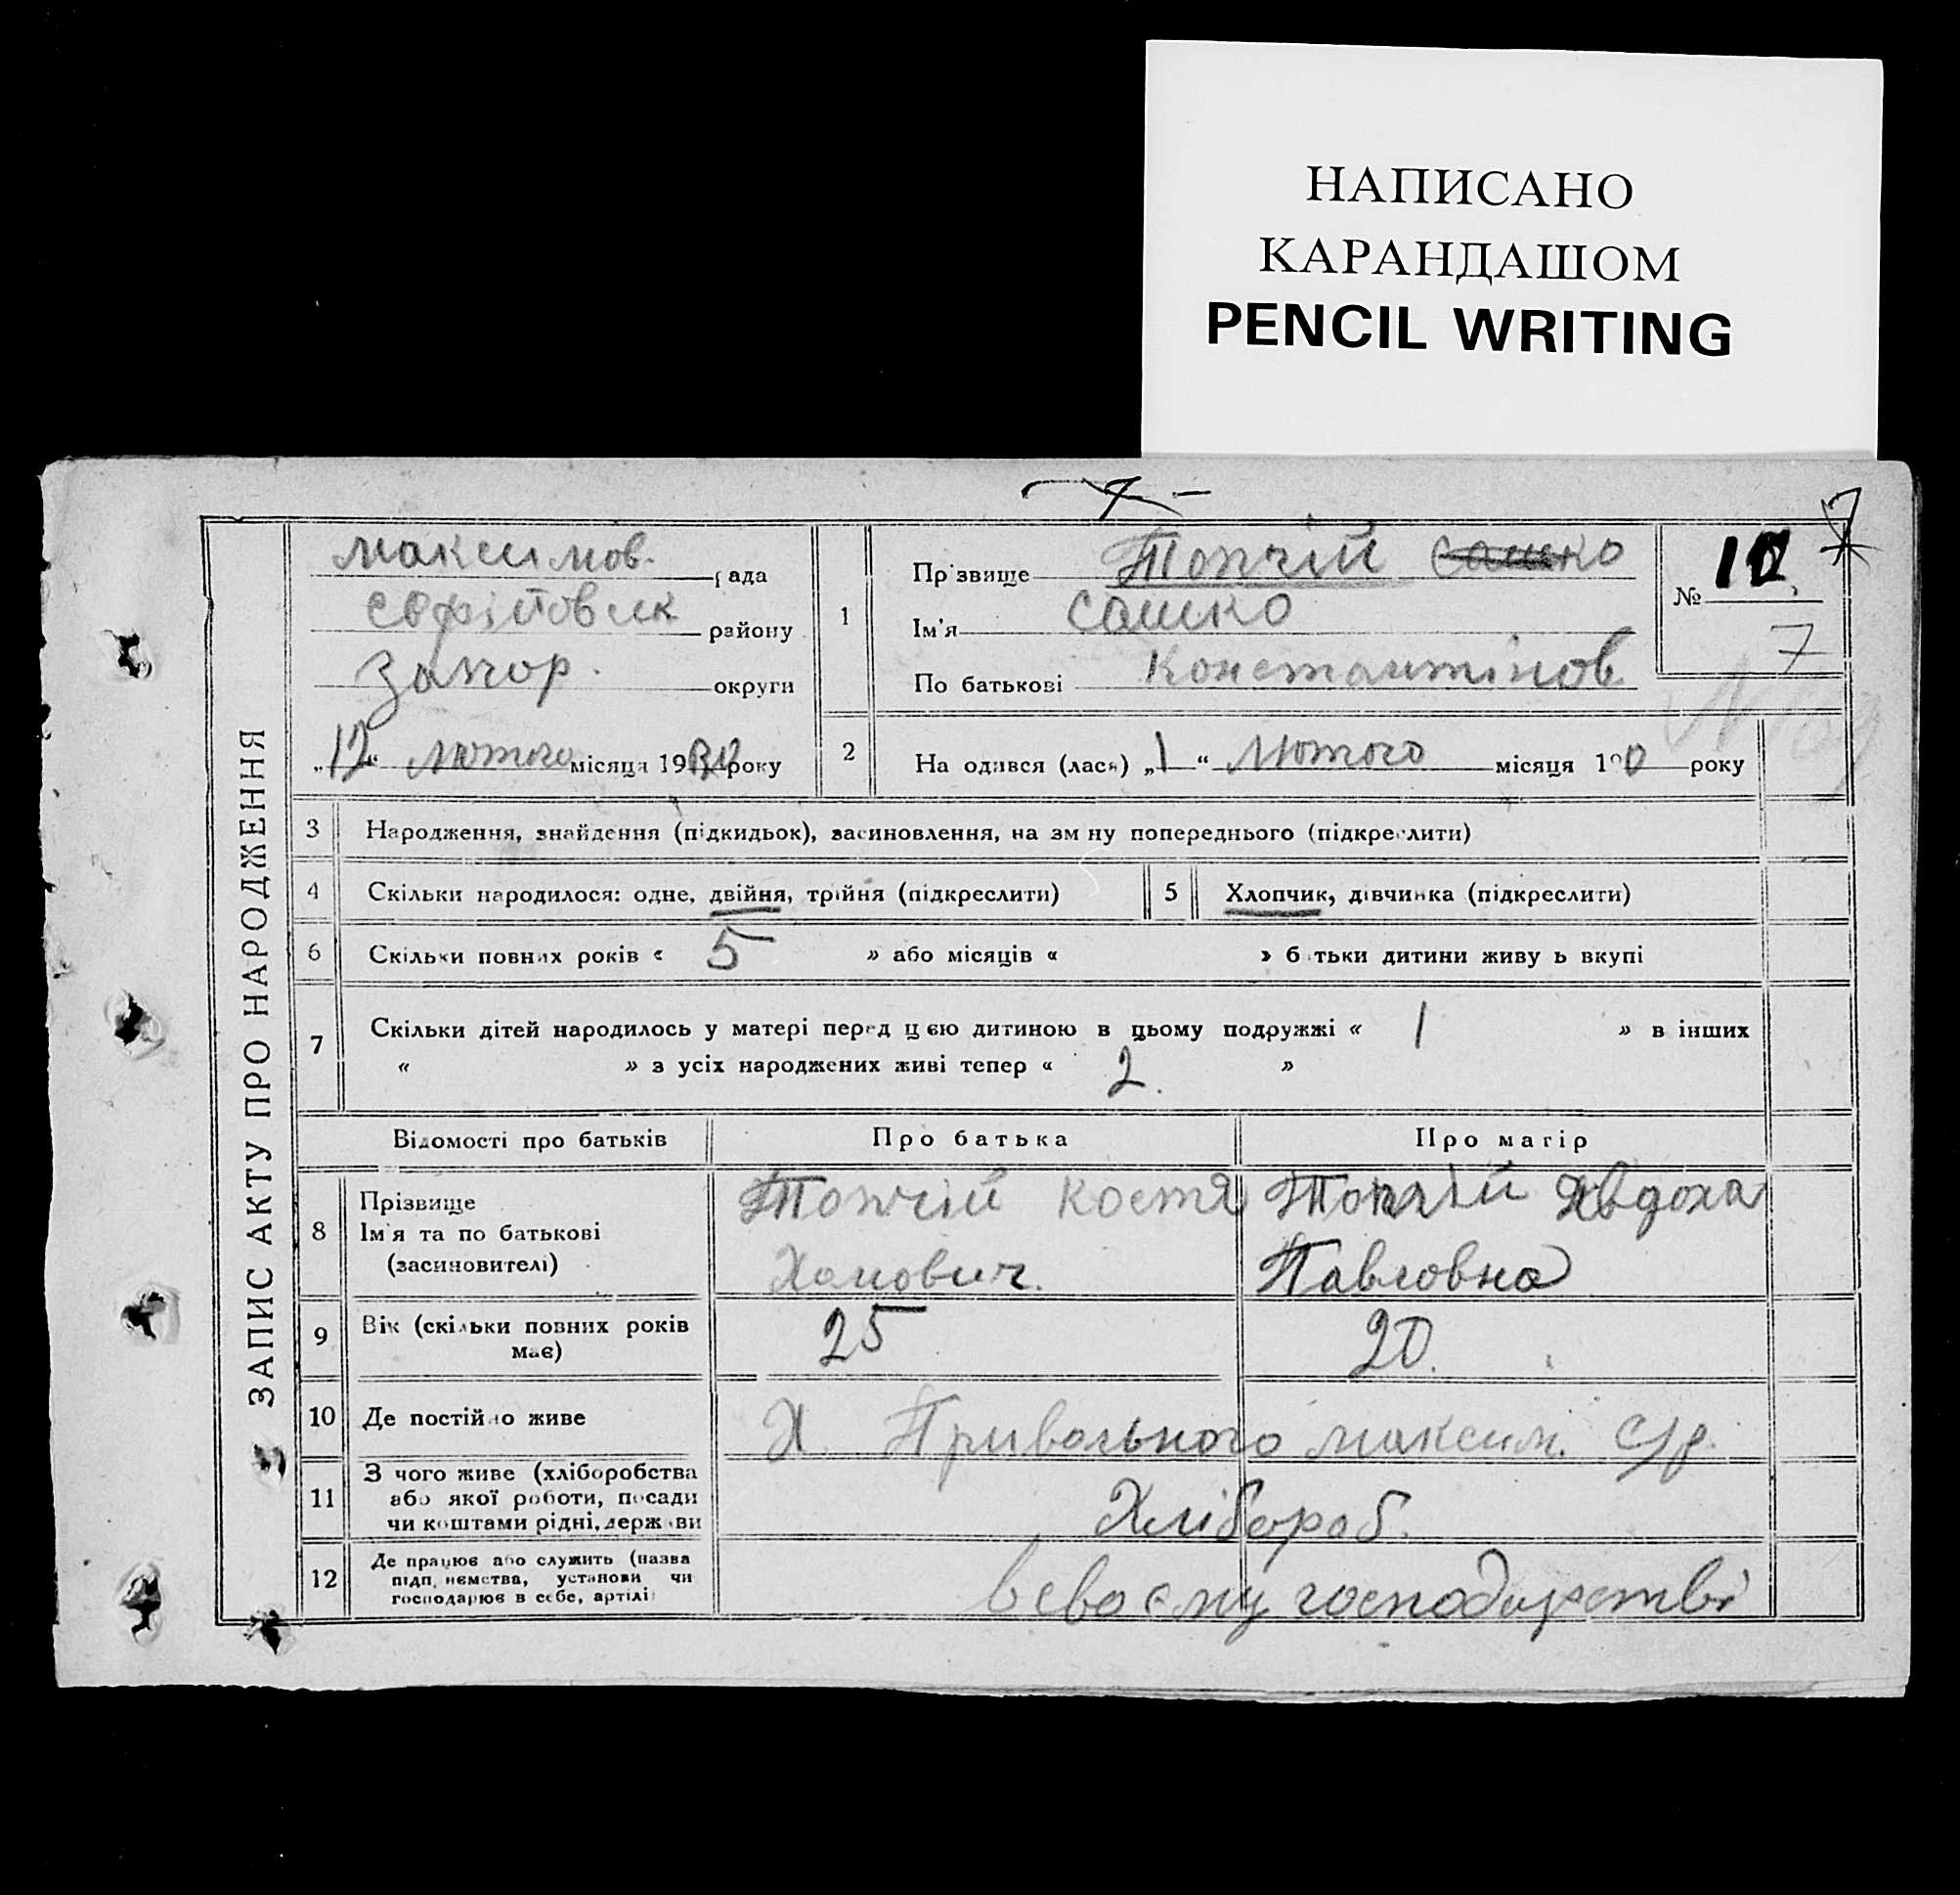 НАПИСАНО
КАРАНДАШОМ
PENCIL WRITING
7
7
ЗАПИС АКТУ ПРО НАРОДЖЕННЯ
максимов. рада
софіївськ району
Запор. округи
„12“ Лютого місяця 1930 року
1
Прізвище Топчій сашко
Ім'я сашко
По батькові Константінов
№ 10
7
2
На одився (лась) „1“ Лютого місяця 190 року
3 Народження, знайдення (підкидьок), засиновлення, на зм ну попереднього (підкреслити)
4 Скільки народилося: одне, двійня, трійня (підкреслити)
5 Хлопчик, дівчинка (підкреслити)
6 Скільки повних років « 5 » або місяців « » б тьки дитини живу ь вкупі
7 Скільки дітей народилось у матері перед цією дитиною в цьому подружжі « 1 » в інших
« » з усіх народжених живі тепер « 2. »
Відомості про батьків Про батька Про матір
8 Прізвище
Ім'я та по батькові
(засиновителі)
Топчій Костя
Хомович.
Топчій Явдоха
Павловна
9 Вік (скільки повних років
має)
25 20.
10 Де постійно живе Х. Привольного максим. с/р.
11 З чого живе (хліборобства
або якої роботи, посади
чи коштами рідні, держави
Хлібороб.
12 Де працює або служить (назва
підп. ємства, установи чи
господарює в себе, артілі
в своєму господарстві